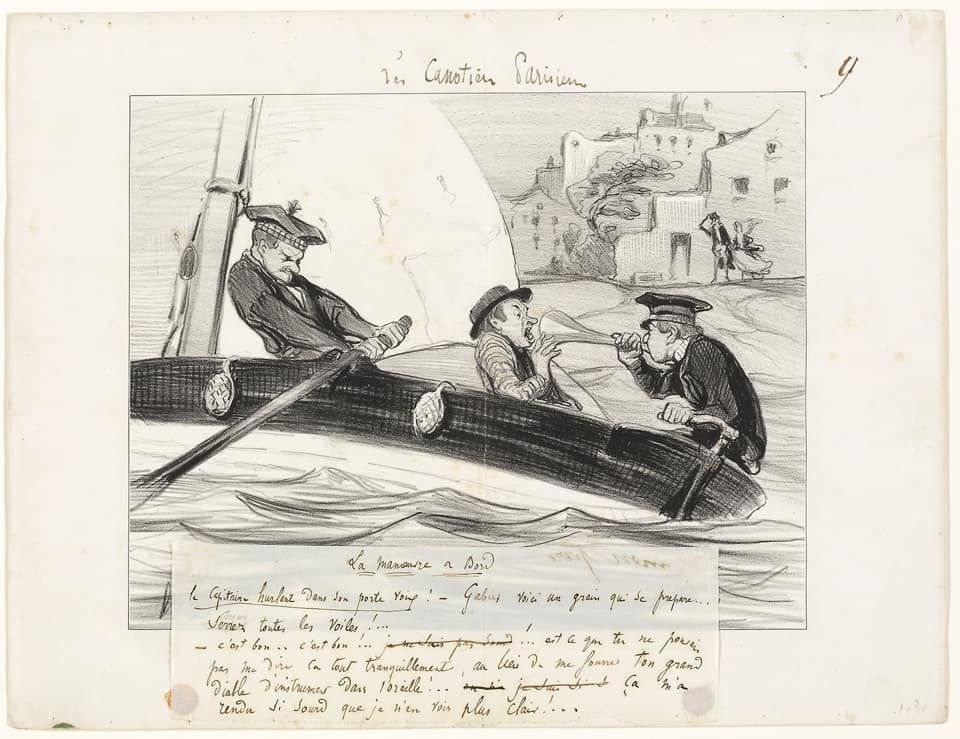 Les Canotiers Parisiens
9
La manœuvre a Bord
le Capitaine hurlant dans son porte voix ! — Gabier voici un grain qui se prépare...
Serrez toutes les voiles !...
— c'est bon .. c'est bon ... je ne suis pas sourd !.. est ce que tu ne pouvais
pas me dire ça tout tranquillement, au lieu de me fourrer ton grand
diable d'instrument dans l'oreille !... je suis si Ça m'a
rendu si sourd que je n'en vois plus clair !...